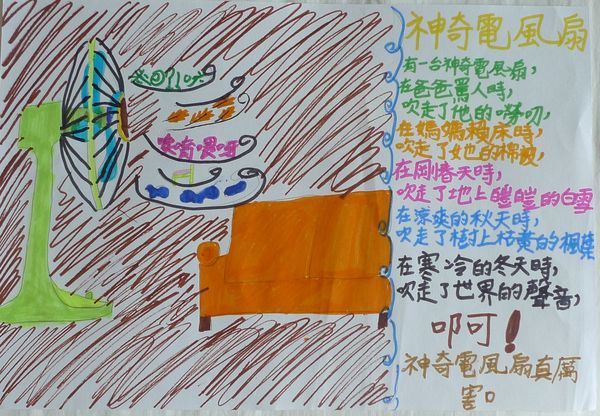 神奇電風扇
有一台神奇電風扇,
在爸爸罵人時,
吹走了他的嘮叨,
在媽媽賴床時,
吹走了她的棉被,
在剛春天時,
吹走了地上皚皚的白雪
在涼爽的秋天時,
吹走了樹上枯黃的楓葉
在寒冷的冬天時,
吹走了世界的聲音,
啊!
神奇電風扇真厲
害。
唉唷喂呀